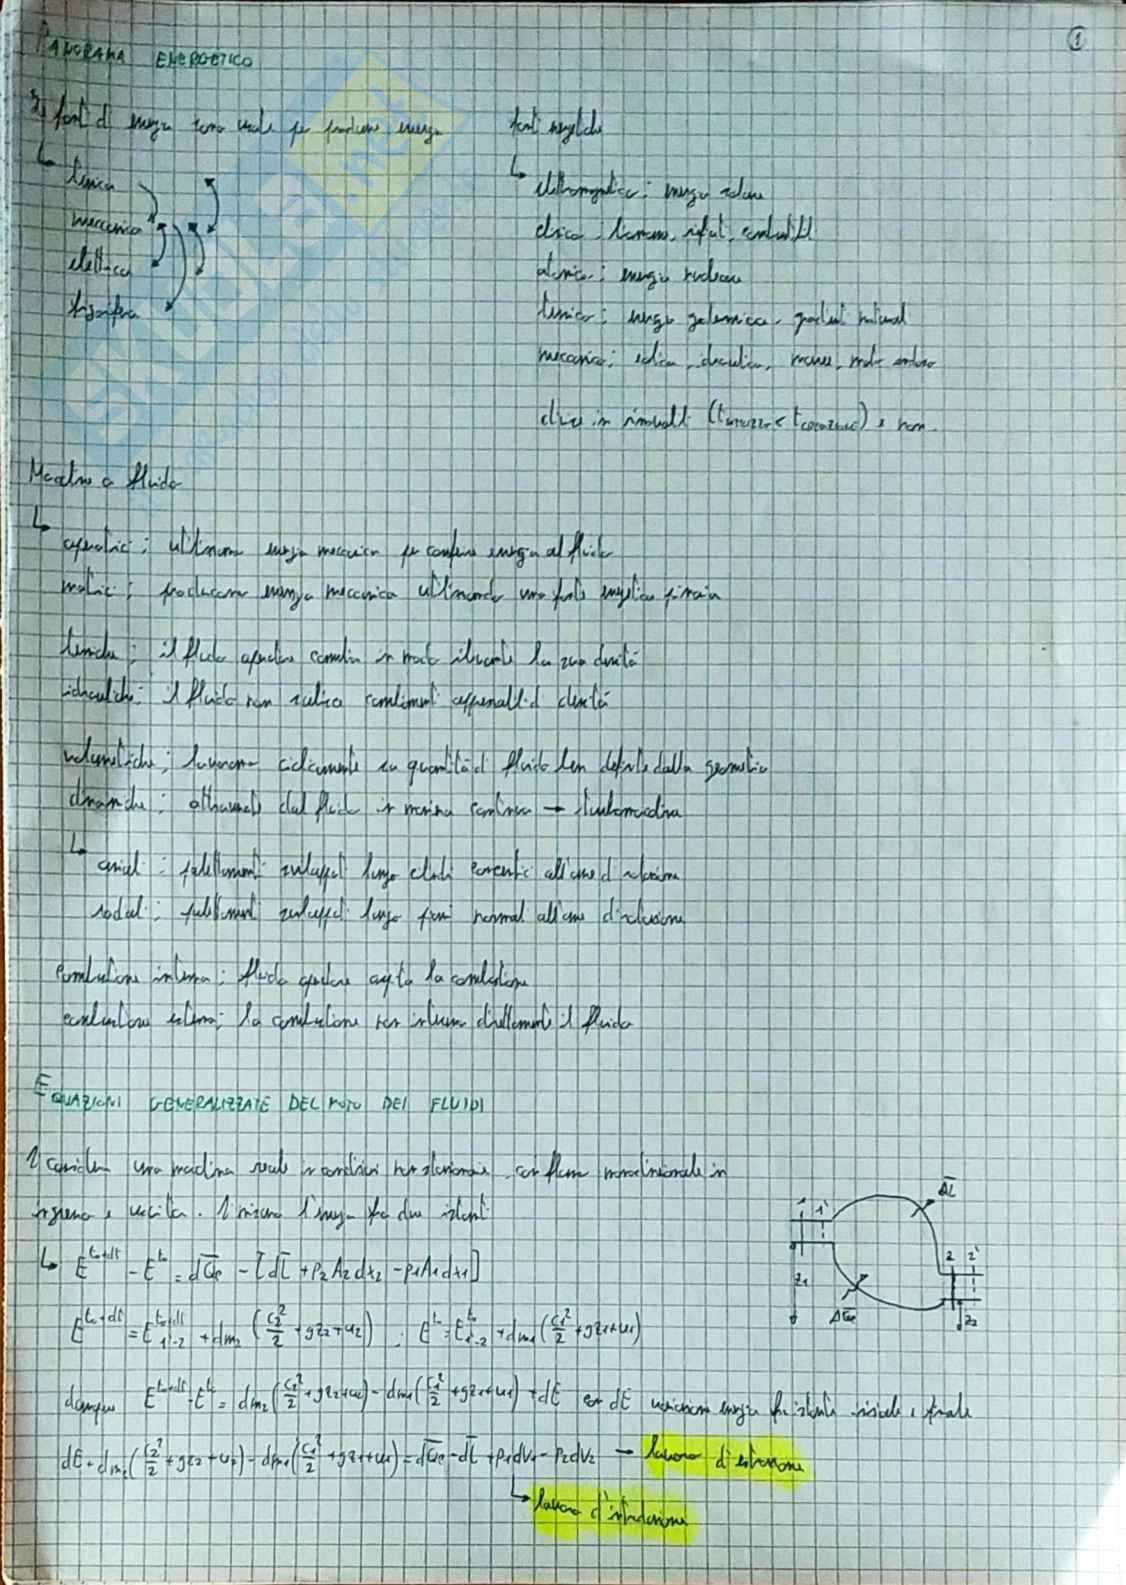 1
PANORAMA ENERGETICO
fonti di energia sono usate per produrre energia
termica
meccanica
elettrica
frigorifera
fonti energetiche
elettromagnetica: energia solare
chimica: biomasse, rifiuti, combustibili
atomica: energia nucleare
termica: energia geotermica, gradienti naturali
meccanica: eolica, idraulica, maree, moto ondoso
divise in rinnovabili e non.
Macchine a fluido
operatrici: utilizzano energia meccanica per conferire energia al fluido
motrici: producono energia meccanica utilizzando una fonte energetica primaria
termiche: il fluido operatore cambia in modo rilevante la sua densità
idrauliche: il fluido non subisce cambiamenti apprezzabili di densità
volumetriche: lavorano ciclicamente su quantità di fluido ben definite dalla geometria
dinamiche: attraversate dal fluido in maniera continua → turbomacchine
assiali: palettamenti sviluppati lungo cilindri concentrici all'asse di rotazione
radiali: palettamenti sviluppati lungo piani normali all'asse di rotazione
combustione interna: fluido operatore ospita la combustione
combustione esterna: la combustione non interessa direttamente il fluido
EQUAZIONI GENERALIZZATE DEL MOTO DEI FLUIDI
Si considera una macchina reale in condizioni non stazionarie, con flusso monodimensionale in
ingresso e uscita. Si misura l'energia fra due istanti
E^{t₀+dt} - E^{t₀} = dQ̅e - [dL̅ + p₂A₂dx₂ - p₁A₁dx₁]
E^{t₀+dt} = E^{t₀+dt}_{1'-2} + dm₂ (c₂²/2 + gz₂ + u₂) ; E^{t₀} = E^{t₀}_{1'-2} + dm₁ (c₁²/2 + gz₁ + u₁)
dunque E^{t₀+dt} - E^{t₀} = dm₂ (c₂²/2 + gz₂ + u₂) - dm₁ (c₁²/2 + gz₁ + u₁) + dE con dE variazione energia fra istante iniziale e finale
dE + dm₂ (c₂²/2 + gz₂ + u₂) - dm₁ (c₁²/2 + gz₁ + u₁) = dQ̅e - dL̅ + p₁dV₁ - p₂dV₂ → lavoro d'estrazione
lavoro d'introduzione
1 1'
ΔL̅
2 2'
z₁
ΔQ̅e
z₂